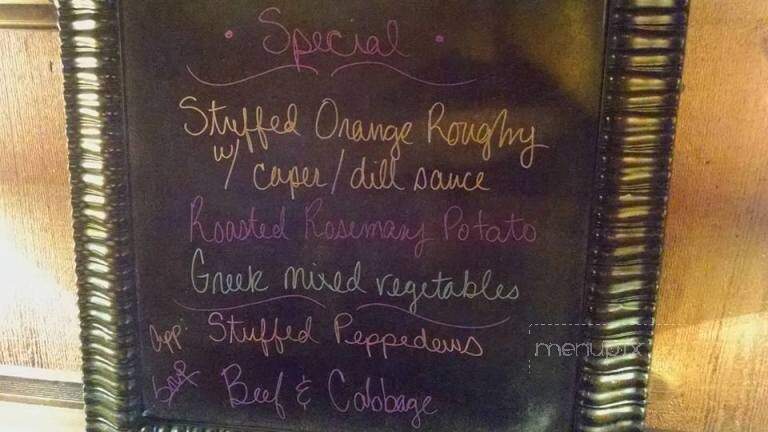 • Special •
Stuffed Orange Roughy
w/ caper/dill sauce
Roasted Rosemary Potato
Greek mixed vegetables
App: Stuffed Peppedews
Soup Beef & Cabbage
menupix